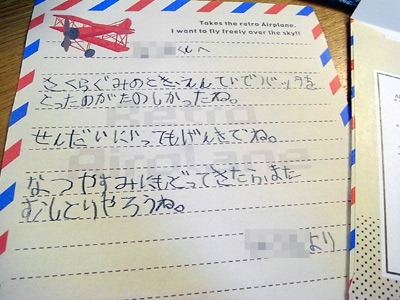 Takes the retro Airplane.
I want to fly freely over the sky!!
くんへ
さくらぐみのとき、えんていでバッタを
とったのがたのしかったね。
せんだいにいってもげんきでね。
Retro
Airplane
なつやすみにもどってきたらまた
むしとりやろうね。
より